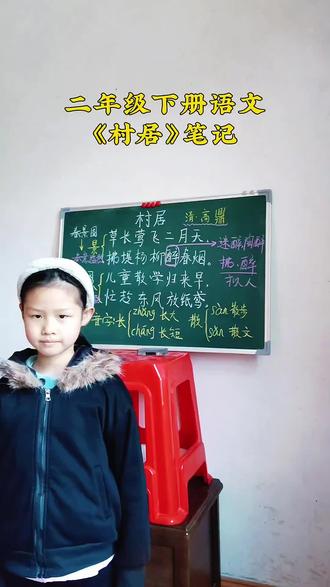 二年级下册语文
《村居》笔记
村居
清·高鼎
草长莺飞二月天,
拂堤杨柳醉春烟。
儿童散学归来早,
忙趁东风放纸鸢。
拟人
长 zhǎng 长大
cháng 长短
散 sàn 散步
sǎn 散文